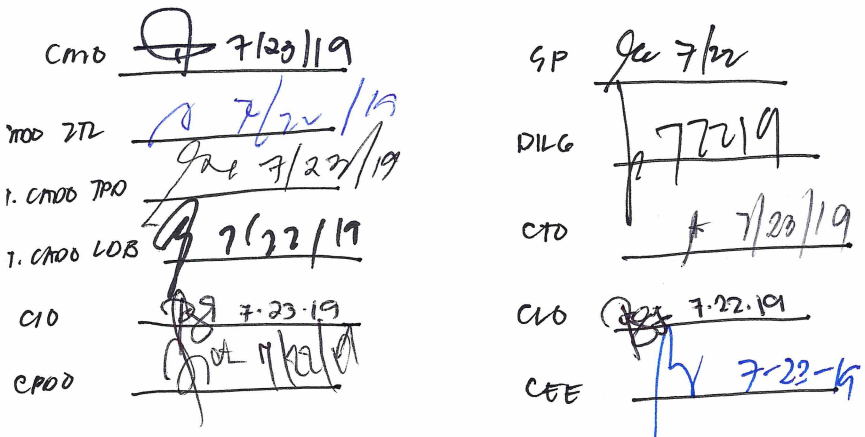 CMO 7/23/19
ITL 7/22/19
1. CADO TPD 7/23/19
1. CADO LDB 7/22/19
CIO 7.23.19
CPDO 7/22/19
SP 7/22
DILG 72219
CTO 7/23/19
CLO 7.22.19
CEE 7-23-19